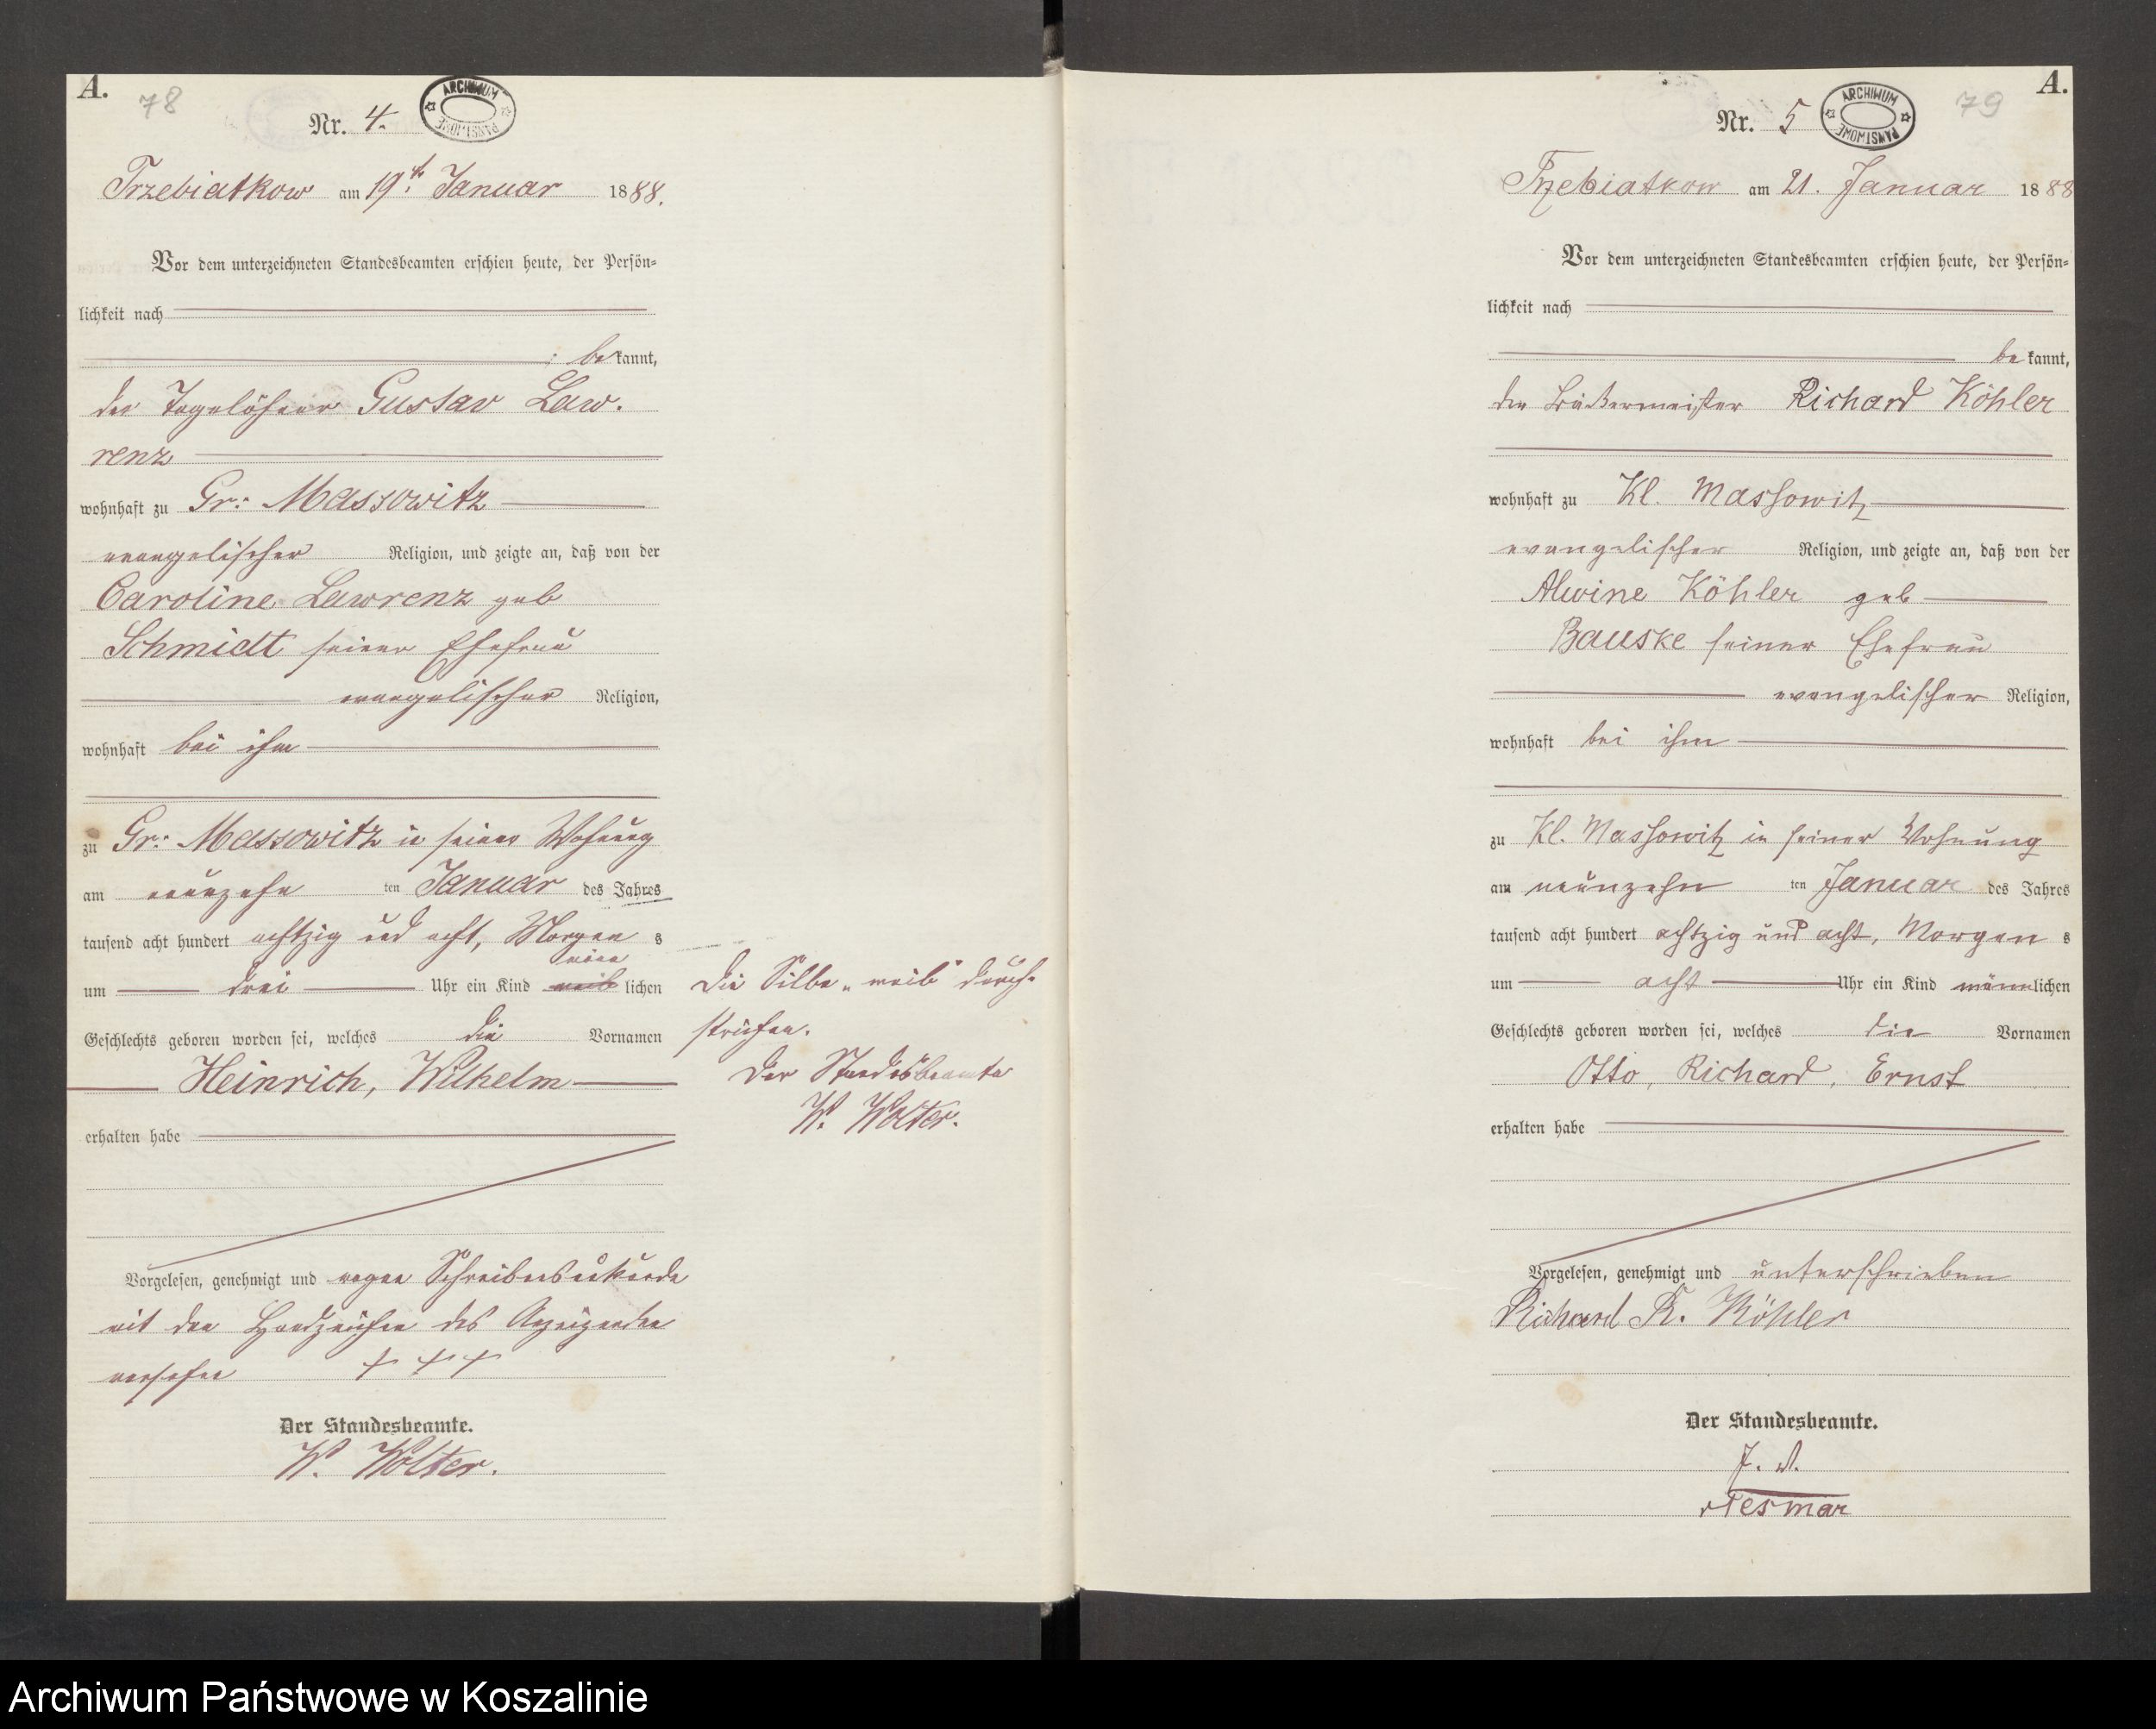 A.
78
Nr. 4.
ARCHIWUM PAŃSTWOWE
Trzebiatkow am 19t. Januar 1888.
Vor dem unterzeichneten Standesbeamten erschien heute, der Persön=
lichkeit nach
bekannt,
der Tagelöhner Gustav Law.
renz
wohnhaft zu Gr: Massowitz
evangelischer Religion, und zeigte an, daß von der
Caroline Lawrenz geb
Schmidt seiner Ehefrau
evangelischer Religion,
wohnhaft bei ihm
zu Gr: Massowitz in seiner Wohnung
am neunzehn ten Januar des Jahres
tausend acht hundert achtzig und acht, Morgen s
um drei Uhr ein Kind weib lichen
Geschlechts geboren worden sei, welches die Vornamen
Heinrich, Wilhelm
erhalten habe
Vorgelesen, genehmigt und wegen Schreibensunkunde
mit den Handzeichen des Anzeigenden
versehen + + +
Der Standesbeamte.
W. Wolter.
Die Silbe „weib" durch-
strichen.
Der Standesbeamte
W. Wolter.
A.
79
Nr. 5
ARCHIWUM PAŃSTWOWE
Trzebiatkow am 21. Januar 1888
Vor dem unterzeichneten Standesbeamten erschien heute, der Persön=
lichkeit nach
bekannt,
der Richard Köhler
wohnhaft zu Kl. Massowitz
evangelischer Religion, und zeigte an, daß von der
Alwine Köhler geb
Bauske seiner Ehefrau
evangelischer Religion,
wohnhaft bei ihm
zu Kl. Massowitz in seiner Wohnung
am neunzehn ten Januar des Jahres
tausend acht hundert achtzig und acht, Morgen s
um acht Uhr ein Kind männlichen
Geschlechts geboren worden sei, welches die Vornamen
Otto, Richard, Ernst
erhalten habe
Vorgelesen, genehmigt und unterschrieben
Richard R. Köhler
Der Standesbeamte.
J. V.
Tesmar
Archiwum Państwowe w Koszalinie